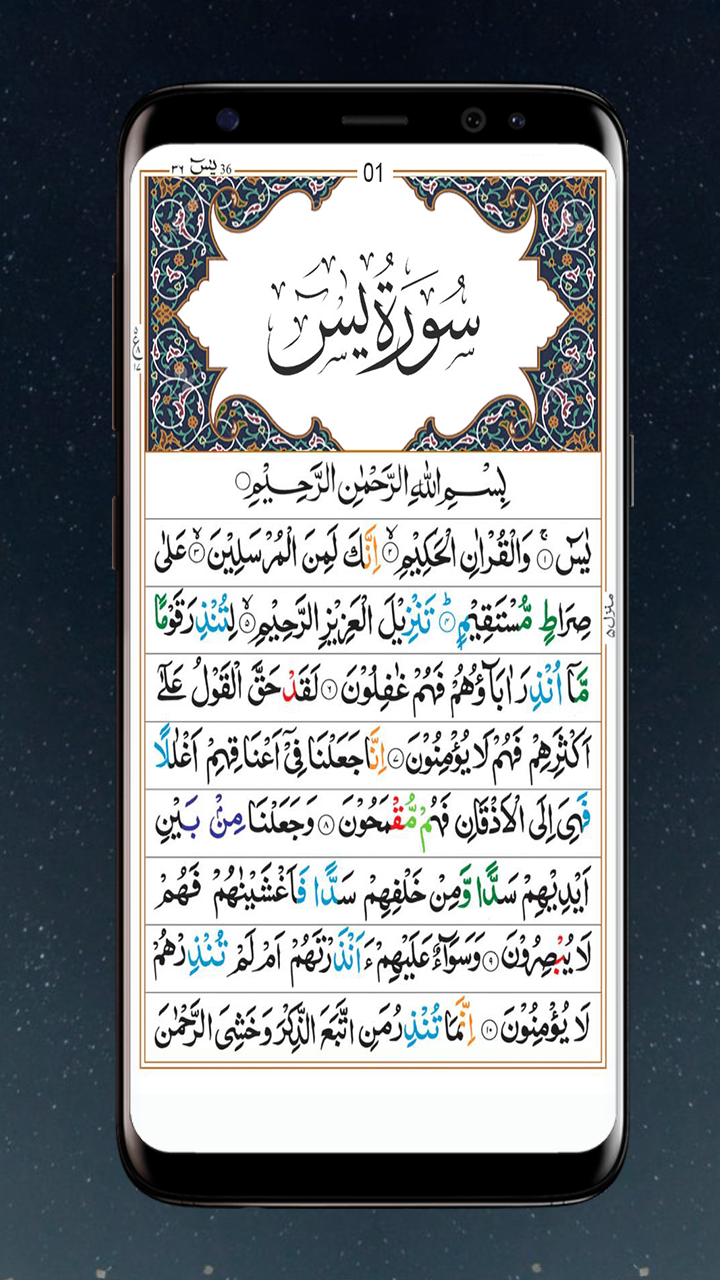 ٣٦ يٰسٓ 36
01
سُورَةُ يسٓ
ع ٨ ١٧
بِسْمِ اللّٰهِ الرَّحْمٰنِ الرَّحِيْمِ
يٰسٓ ۚ﴿١﴾ وَالْقُرْاٰنِ الْحَكِيْمِ ۙ﴿٢﴾ اِنَّكَ لَمِنَ الْمُرْسَلِيْنَ ۙ﴿٣﴾ عَلٰى
صِرَاطٍ مُّسْتَقِيْمٍ ؕ﴿٤﴾ تَنْزِيْلَ الْعَزِيْزِ الرَّحِيْمِ ۙ﴿٥﴾ لِتُنْذِرَ قَوْمًا
مَّاۤ اُنْذِرَ اٰبَآؤُهُمْ فَهُمْ غٰفِلُوْنَ ﴿٦﴾ لَقَدْ حَقَّ الْقَوْلُ عَلٰۤى
اَكْثَرِهِمْ فَهُمْ لَا يُؤْمِنُوْنَ ﴿٧﴾ اِنَّا جَعَلْنَا فِيْۤ اَعْنَاقِهِمْ اَغْلٰلًا
فَهِىَ اِلَى الْاَذْقَانِ فَهُمْ مُّقْمَحُوْنَ ﴿٨﴾ وَجَعَلْنَا مِنْۢ بَيْنِ
اَيْدِيْهِمْ سَدًّا وَّمِنْ خَلْفِهِمْ سَدًّا فَاَغْشَيْنٰهُمْ فَهُمْ
لَا يُبْصِرُوْنَ ﴿٩﴾ وَسَوَآءٌ عَلَيْهِمْ ءَاَنْذَرْتَهُمْ اَمْ لَمْ تُنْذِرْهُمْ
لَا يُؤْمِنُوْنَ ﴿١٠﴾ اِنَّمَا تُنْذِرُ مَنِ اتَّبَعَ الذِّكْرَ وَخَشِىَ الرَّحْمٰنَ
منزل ٥